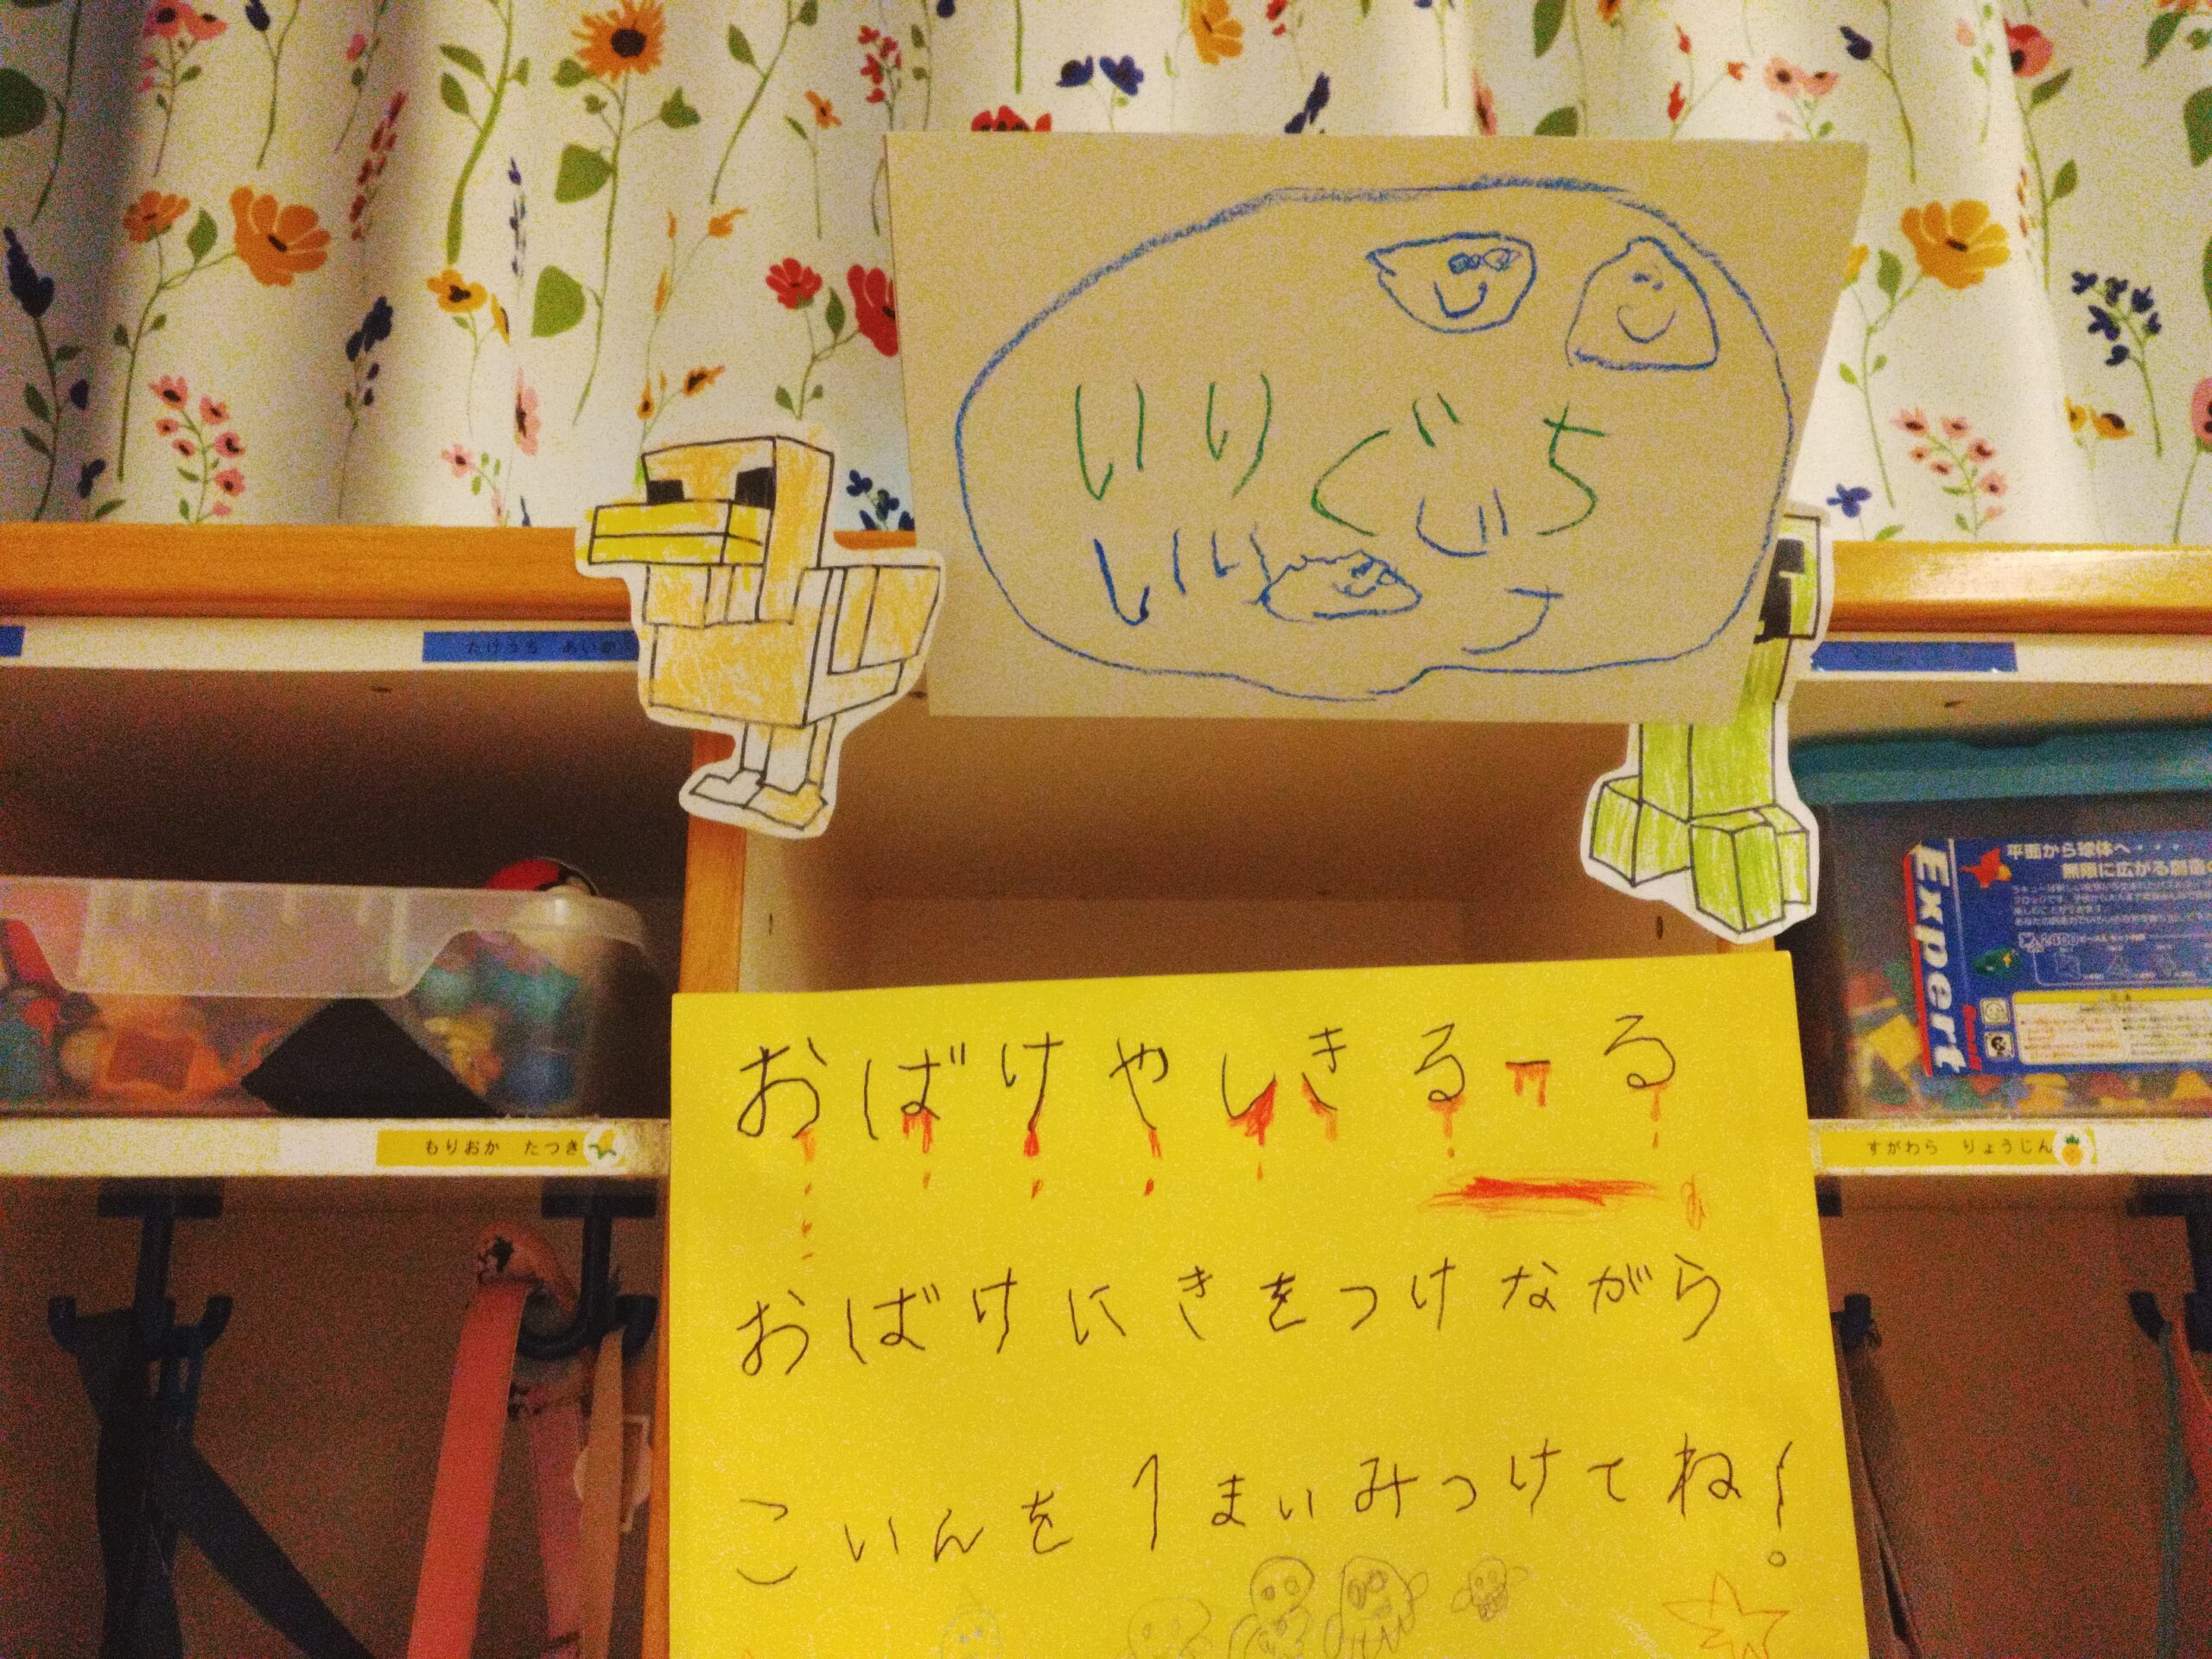 いりぐち
おばけやしきるーる
おばけにきをつけながら
こいんを1まいみつけてね!
もりおか たつき
すがわら りょうじん
Expert
平面から球体へ・・・
無限に広がる創造